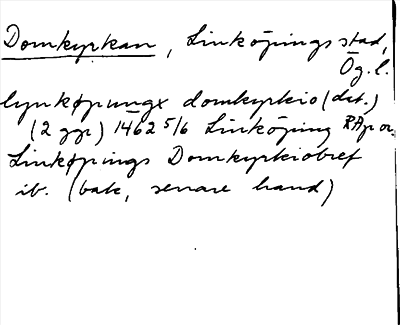 Domkyrkan, Linköpings stad,
Ög. l.
lynkøpungx domkyrkio (dat.)
(2 ggr) 1462 5/6 Linköping RAp or.
Linkøpings Domkyrkiobref
ib. (bak, senare hand)